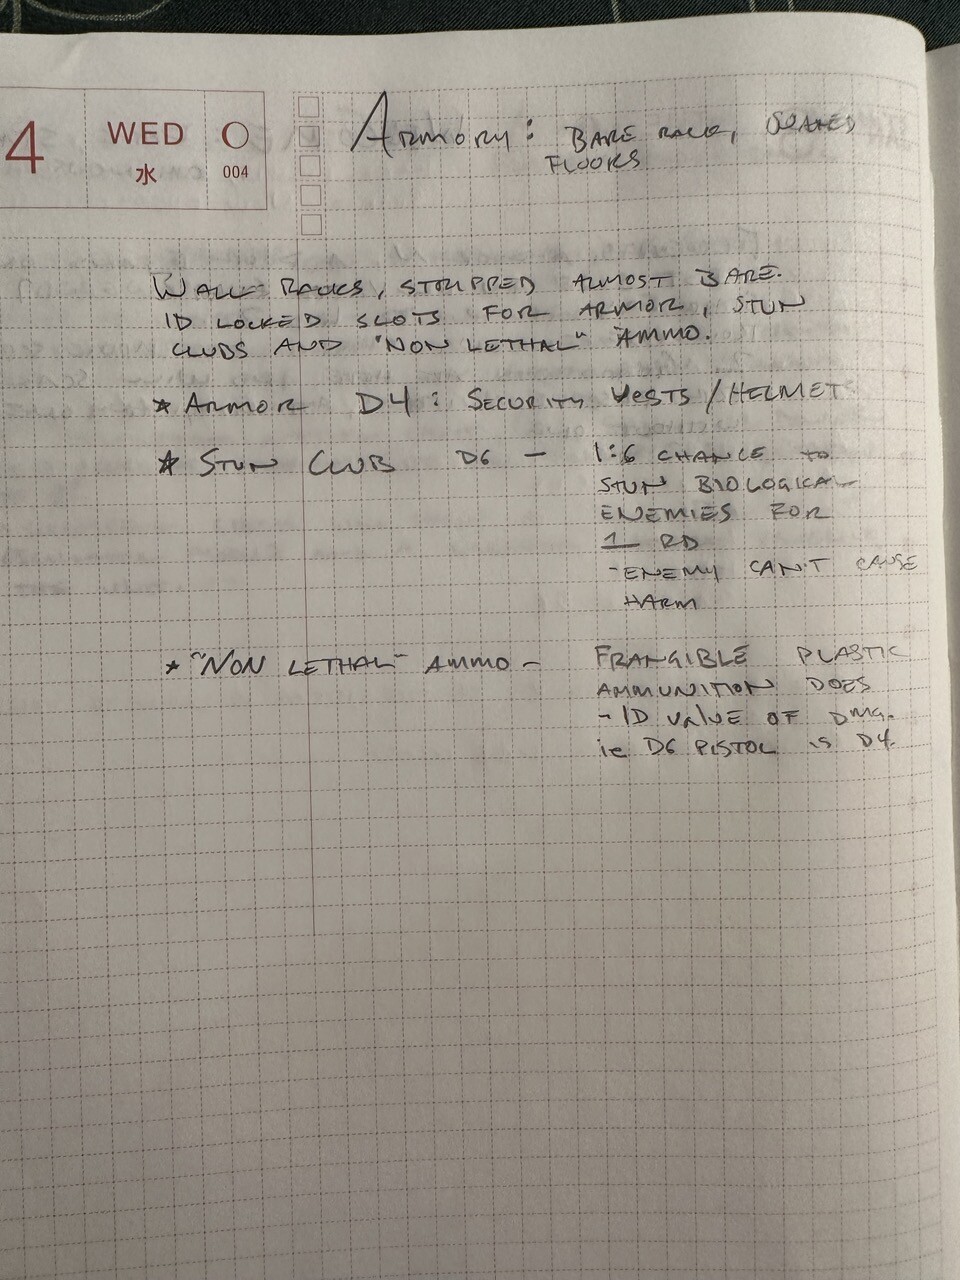 4 WED O
水 004
ARMORY: BARE RACK,
FLOORS
WALL RACKS, STRIPPED ALMOST BARE.
ID LOCKED SLOTS FOR ARMOR, STUN
CLUBS AND "NON LETHAL" AMMO.
* ARMOR D4: SECURITY VESTS/HELMET
* STUN CLUB D6 - 1:6 CHANCE TO
STUN BIOLOGICAL
ENEMIES FOR
1 RD
- ENEMY CAN'T CAUSE
HARM
* "NON LETHAL" AMMO - FRANGIBLE PLASTIC
AMMUNITION DOES
- 1D VALUE OF DMG.
ie D6 PISTOL is D4.